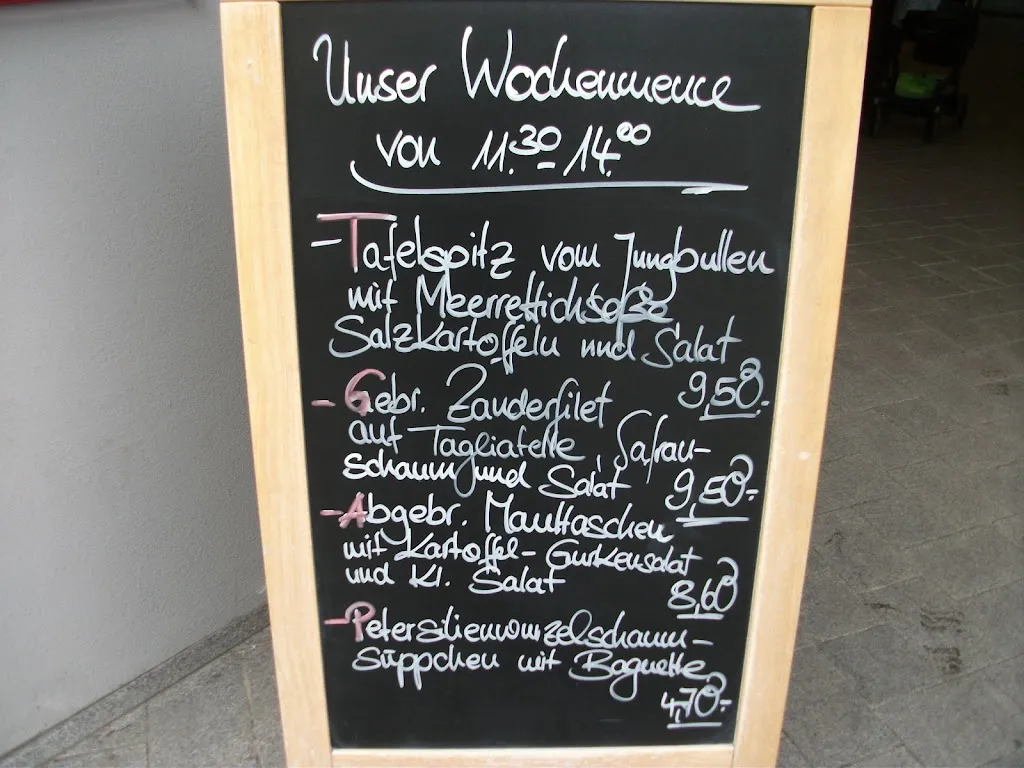 Unser Wochenmenue
von 11.30 - 14.00
- Tafelspitz vom Jungbullen
mit Meerrettichsoße
Salzkartoffeln und Salat
9,50.-
- Gebr. Zanderfilet
auf Tagliatelle, Safran-
schaum und Salat 9,50.-
- Abgebr. Maultaschen
mit Kartoffel-Gurkensalat
und Kl. Salat 8,60
- Petersilienwurzelschaum-
süppchen mit Baguette
4,70.-